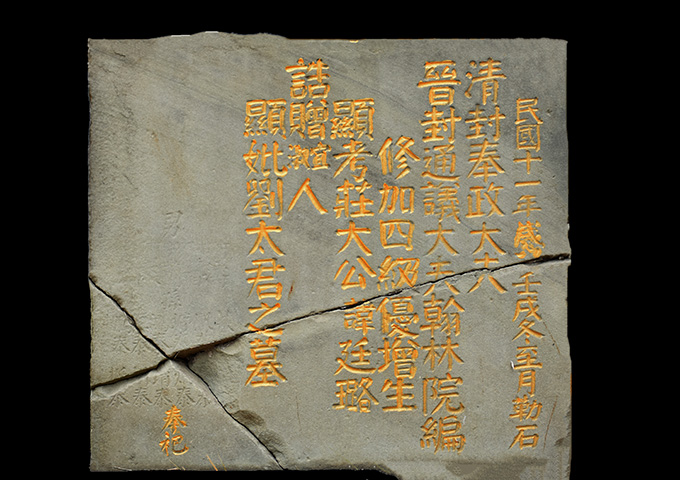 民國十一年歲壬戌冬至月勤石
清封奉政大夫
晉封通議大夫翰林院編
修加四級優增生
顯考莊大公諱廷璐
誥贈宜淑人
顯妣劉太君之墓
奉祀